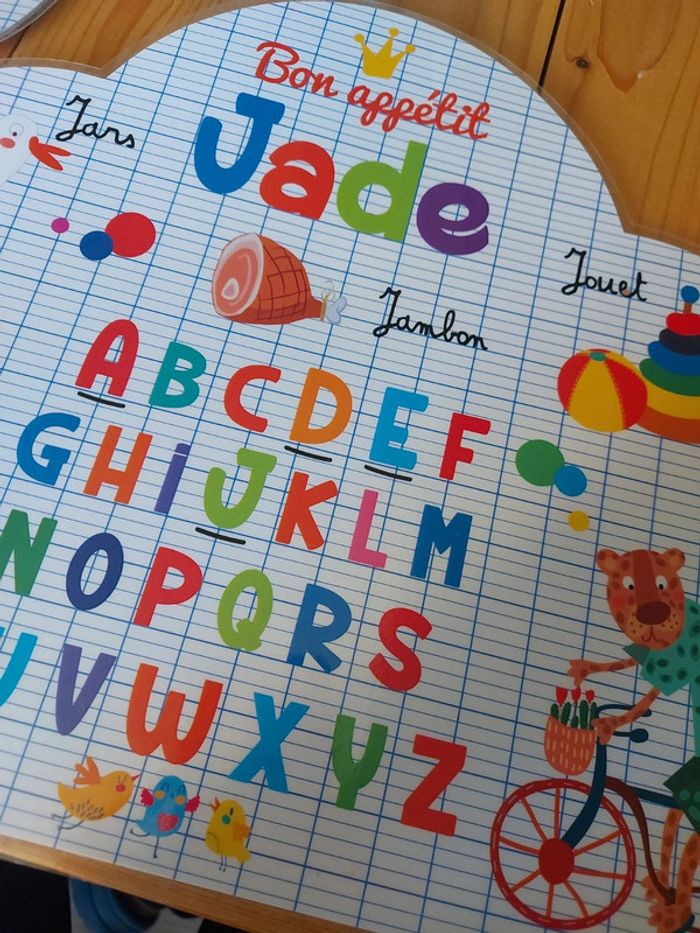 Bon appétit
Jade
Jars
Jouet
Jambon
A B C D E F
G H I J K L M
N O P Q R S
U V W X Y Z